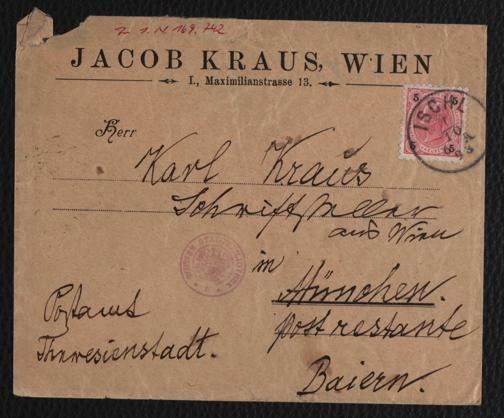 Z. I. N. 169.742
JACOB KRAUS, WIEN
I., Maximilianstrasse 13.
5 5
ISCHL
5 5
Herr
Karl Kraus
Schriftsteller
aus Wien
in
München.
postrestante
Baiern.
Postamt
Theresienstadt.